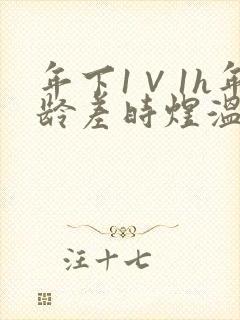 年下1V1h年
龄差时煌温
汪十七